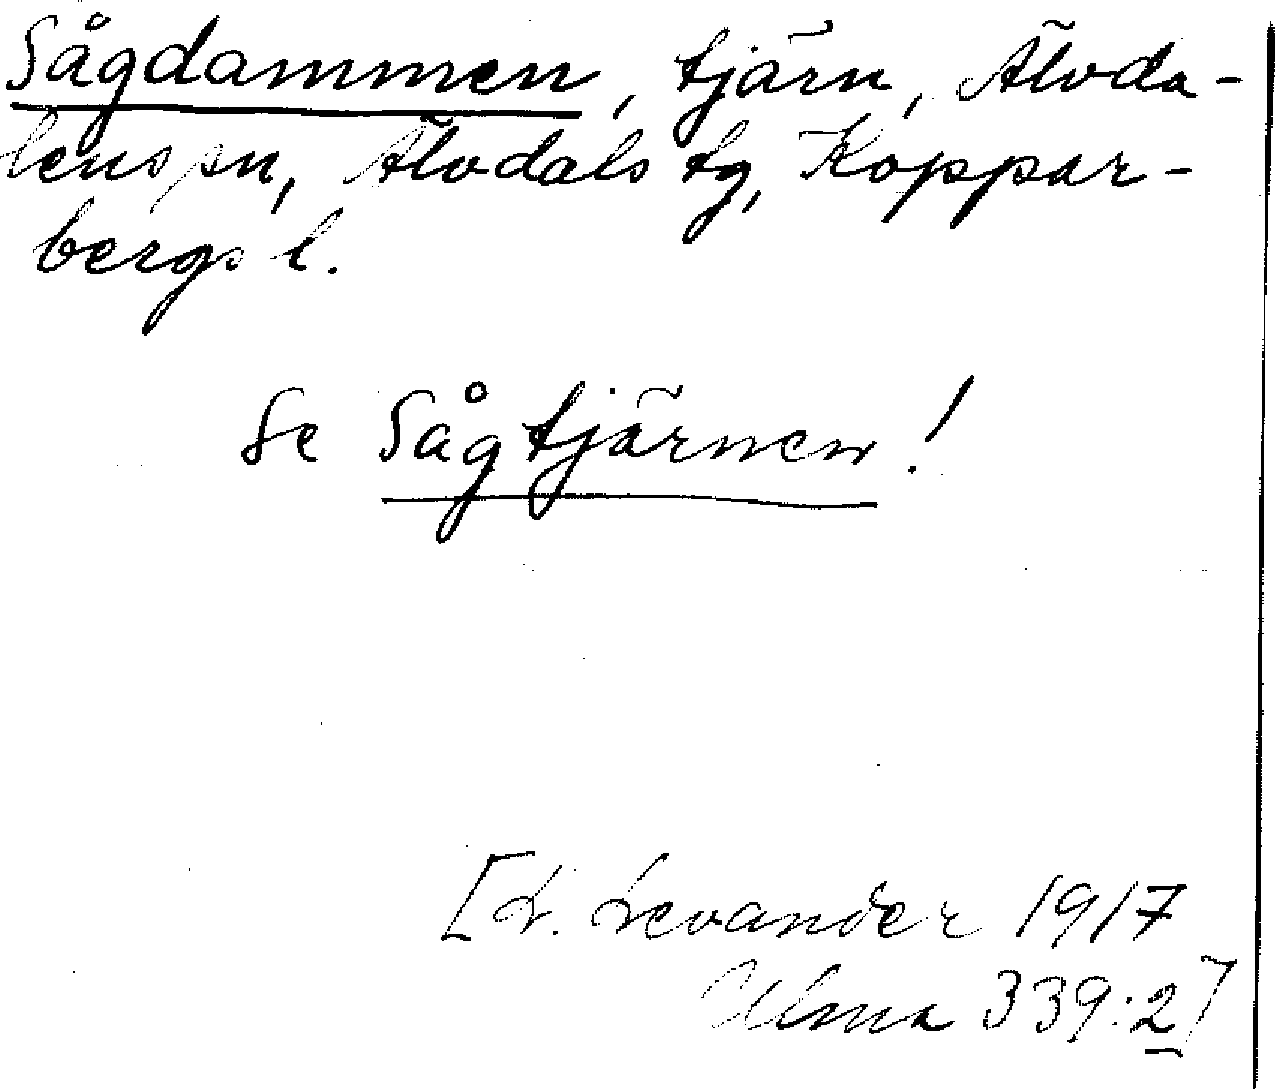 Sågdammen, tjärn, Älvda-
lens sn, Älvdals tg, Koppar-
bergs l.
Se Sågtjärnen!
[L. Levander 1917
Ulma 339:2]